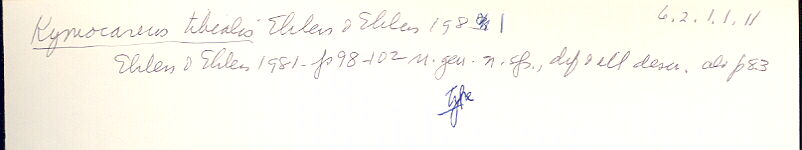 Kymocarens tibialis Ehlers & Ehlers 1981 6.2.1.1.11
Ehlers & Ehlers 1981 - p 98-102 n. gen. n. sp., dif & ell descr. also p 83
type